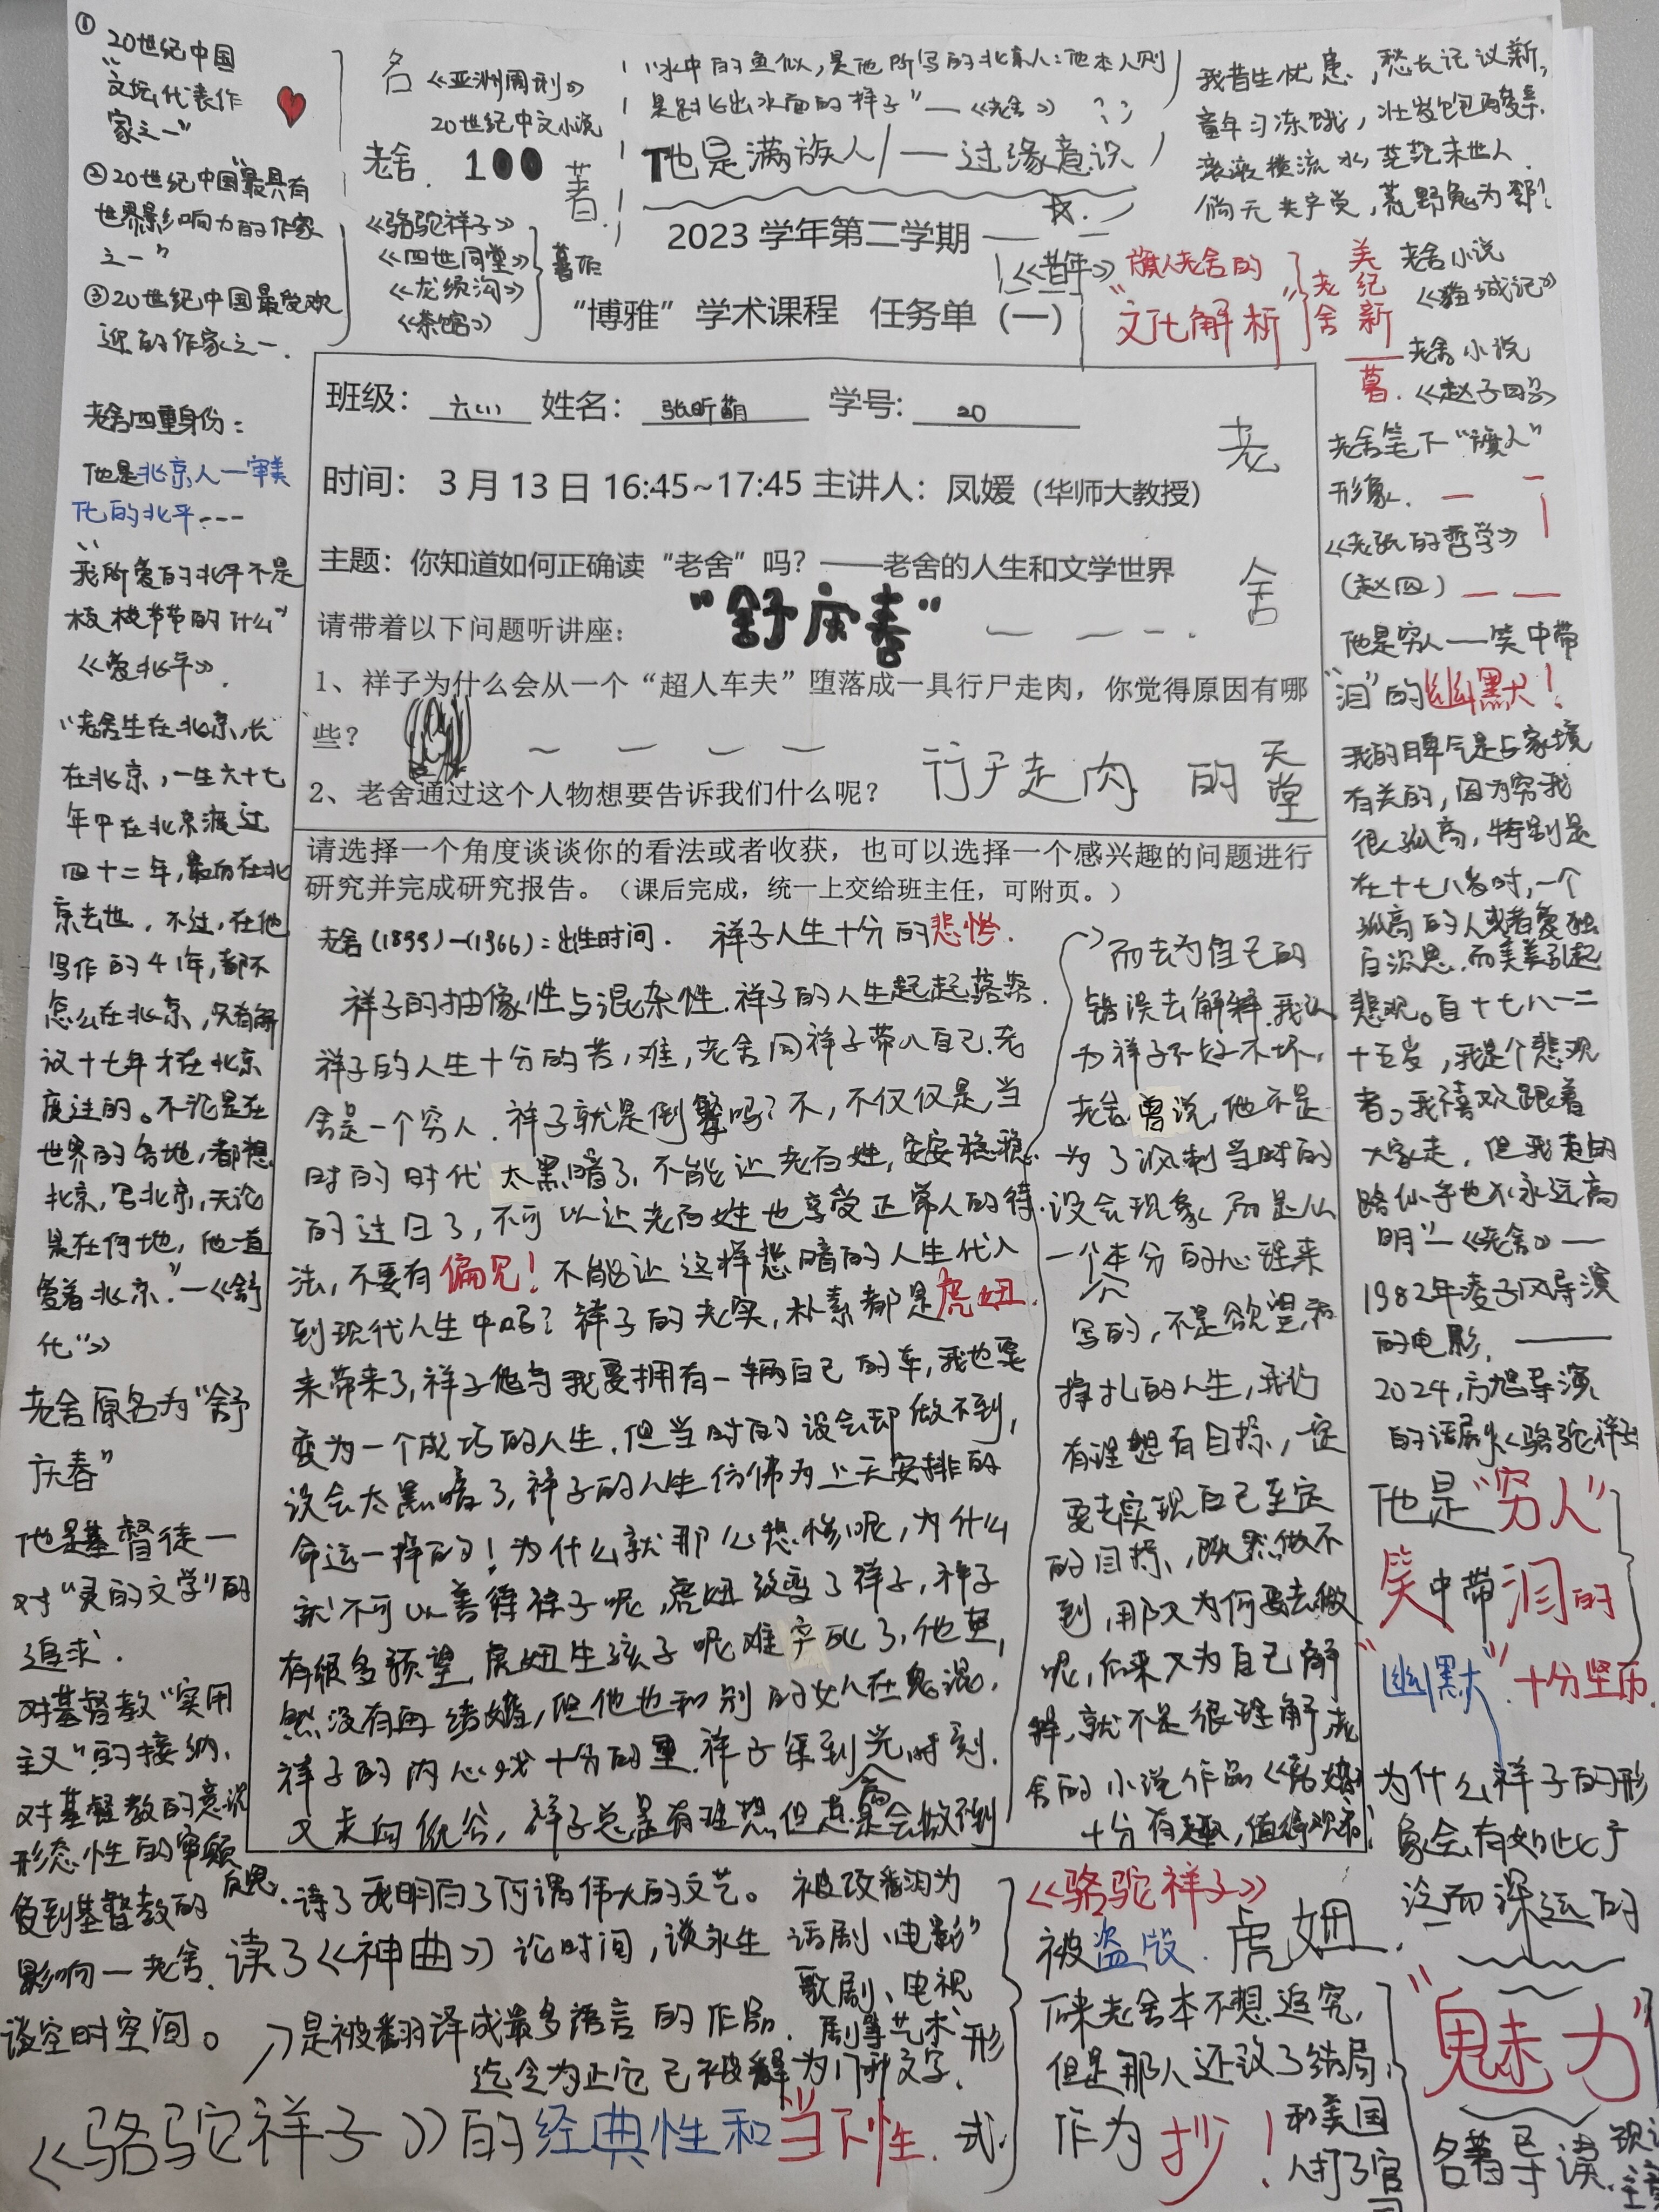 ①
20世纪中国
"文坛代表作
家之一"
②20世纪中国"最具有
世界影响力的作家
之一"
③20世纪中国最受欢
迎的作家之一.
名《亚洲周刊》
20世纪中文小说
老舍. 100
著
《骆驼祥子》
《四世同堂》
《龙须沟》
《茶馆》
著作
"水中的鱼似,是他所写的北京人:他本人则
是跃出水面的样子"—《老舍》
他是满族人/一过缘意识
我昔生忧患,愁长记议新,
童年习冻饿,壮岁饱酸辛.
滚滚横流水,茫茫末世人.
倘无共产党,荒野鬼为邻!
《昔年》
2023 学年第二学期
"博雅"学术课程 任务单(一)
旗人老舍的
"文化解析"
老舍
美纪新
著.
老舍小说
《猫城记》
老舍小说
《赵子曰》
老舍笔下"旗人"
形象.
《老张的哲学》
(赵四)
他是穷人——笑中带
"泪"的幽默!
我的脾气是与家境
有关的,因为穷我
很孤高,特别是
在十七八岁时,一个
孤高的人或者爱独
自沉思,而美美引起
悲观。自十七八一二
十五岁,我是个悲观
者。我喜欢跟着
大家走,但我走的
路似乎也不永远高
明"—《老舍》—
1982年凌子风导演
的电影.
2024,方旭导演
的话剧《骆驼祥子
他是"穷人"
笑中带泪的
"幽默".十分坚历
为什么祥子的形
象会有如此于
泛而深远的
"魅力"
名著导读
老舍四重身份:
他是北京人一审美
化的北平---
"我所爱的北平不是
枝枝节节的什么"
《爱北平》.
"老舍生在北京,长
在北京,一生六十七
年中在北京渡过
四十二年,最而在北
京去世,不过,在他
写作的41年,都不
怎么在北京,只有解
议十七年才在北京
度过的。不论是在
世界的各地,都想
北京,写北京,无论
是在何地,他一直
爱着北京."—《舒
化"》
老舍原名为"舒
庆春"
他是基督徒一
对"灵的文学"的
追求.
对基督教"实用
主义"的接纳、
对基督教的意识
形态性的审顾
反思.
受到基督教的
影响一老舍.
班级: 六(1) 姓名: 张昕萌 学号: 20
时间: 3 月 13 日 16:45~17:45 主讲人:凤媛(华师大教授)
主题:你知道如何正确读"老舍"吗?——老舍的人生和文学世界
老
舍
请带着以下问题听讲座:
"舒庆春"
1、祥子为什么会从一个"超人车夫"堕落成一具行尸走肉,你觉得原因有哪
些?
2、老舍通过这个人物想要告诉我们什么呢?
行尸走肉 的 天堂
请选择一个角度谈谈你的看法或者收获,也可以选择一个感兴趣的问题进行
研究并完成研究报告。(课后完成,统一上交给班主任,可附页。)
老舍(1899)—(1966)=出生时间. 祥子人生十分的悲惨.
祥子的抽像性与混杂性.祥子的人生起起落落.
祥子的人生十分的苦,难,老舍同祥子带入自己.老
舍是一个穷人.祥子就是倒霉吗?不,不仅仅是,当
时的时代太黑暗了,不能让老百姓,安安稳稳
的过日了,不可以让老百姓也享受正常人的待
法,不要有偏见!不能让这样悲暗的人生代入
到现代人生中吗?祥子的老实,朴素都是虎妞.
来带来了,祥子他与我要拥有一辆自己的车,我也要
变为一个成功的人生.但当时的设会却做不到,
设会太黑暗了,祥子的人生仿佛为上天安排的
命运一样的!为什么就那么悲惨呢,为什么
就不可以善待祥子呢,虎妞改变了祥子,祥子
有很多预望,虎妞生孩子呢难产死了,他虽
然没有再结婚,但他也和别的女人在鬼混,
祥子的内心戏十分的重.祥子每到高光时刻.
又走向低谷,祥子总是有理想,但总是会做不到
而去为自己的
错误去解释.我认
为祥子不好不坏,
老舍曾说,他不是
为了讽刺当时的
设会现象,而是从
一个本分的心理来
写的,不是欲望和
挣扎的人生,我们
有理想有目标,一定
要去实现自己至定
的目标,既然做不
到,那又为何要去做
呢,后来又为自己解
释,就不是很理解老
舍的小说作品《骆驼》
十分有趣,值得观看!
读了我明白了何谓伟大的文艺。
读了《神曲》论时间,谈永生
谈空时空间。
被改番羽为
话剧、电影
歌剧、电视
剧等艺术形
式
是被翻译成最多语言的作品.
迄今为止它已被翻译为门种文字.
《骆驼祥子》的经典性和当下性.
《骆驼祥子》
被盗版. 虎妞.
后来老舍本不想追究,
但是那人还议了结局,
作为抄!
和美国
人打了官
司